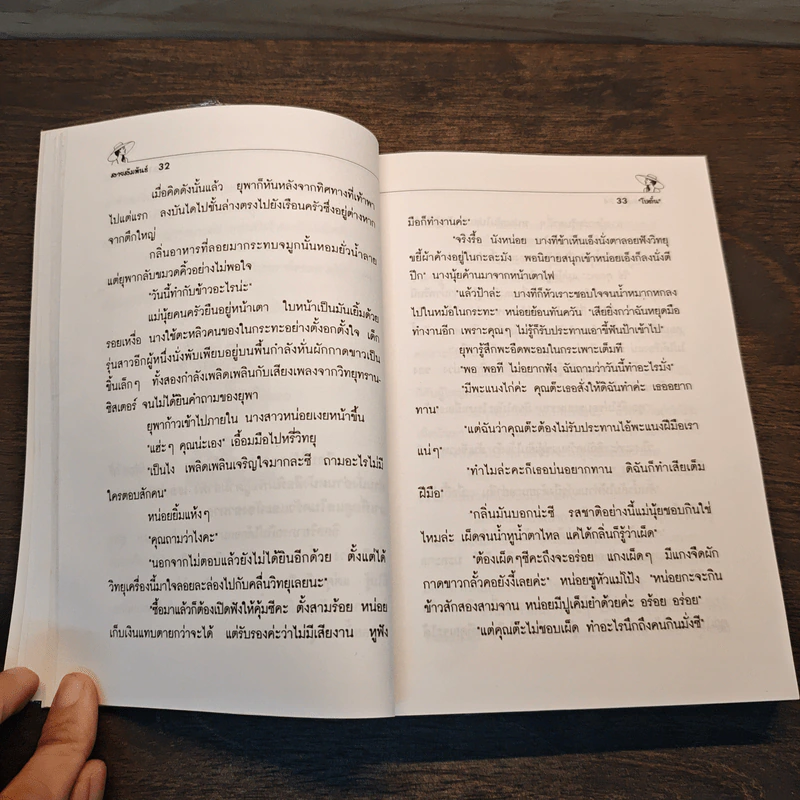 สะพานสัมพันธ์ 32
เมื่อคิดดังนั้นแล้ว ยุพาก็หันหลังจากทิศทางที่เท้าพา
ไปแต่แรก ลงบันไดไปชั้นล่างตรงไปยังเรือนครัวซึ่งอยู่ต่างหาก
จากตึกใหญ่
กลิ่นอาหารที่ลอยมากระทบจมูกนั้นหอมยั่วน้ำลาย
แต่ยุพากลับขมวดคิ้วอย่างไม่พอใจ
"วันนี้ทำกับข้าวอะไรน่ะ"
แม่นุ้ยคนครัวยืนอยู่หน้าเตา ใบหน้าเป็นมันเยิ้มด้วย
รอยเหงื่อ นางใช้ตะหลิวคนของในกระทะอย่างตั้งอกตั้งใจ เด็ก
รุ่นสาวอีกผู้หนึ่งนั่งพับเพียบอยู่บนพื้นกำลังหั่นผักกาดขาวเป็น
ชิ้นเล็กๆ ทั้งสองกำลังเพลิดเพลินกับเสียงเพลงจากวิทยุทราน-
ซิสเตอร์ จนไม่ได้ยินคำถามของยุพา
ยุพาก้าวเข้าไปภายใน นางสาวหน่อยเงยหน้าขึ้น
"แฮ่ะๆ คุณน่ะเอง" เอื้อมมือไปหรี่วิทยุ
"เป็นไง เพลิดเพลินเจริญใจมากละซี ถามอะไรไม่มี
ใครตอบสักคน"
หน่อยยิ้มแห้งๆ
"คุณถามว่าไงคะ"
"นอกจากไม่ตอบแล้วยังไม่ได้ยินอีกด้วย ตั้งแต่ได้
วิทยุเครื่องนี้มาใจลอยละล่องไปกับคลื่นวิทยุเลยนะ"
"ซื้อมาแล้วก็ต้องเปิดฟังให้คุ้มซีคะ ตั้งสามร้อย หน่อย
เก็บเงินแทบตายกว่าจะได้ แต่รับรองค่ะว่าไม่มีเสียงาน หูฟัง
33 "โบตั๋น"
มือก็ทำงานค่ะ"
"จริงรื้อ นังหน่อย บางทีข้าเห็นเอ็งนั่งตาลอยฟังวิทยุ
ขยี้ผ้าค้างอยู่ในกะละมัง พอนิยายสนุกเข้าหน่อยเอ็งก็ลงนั่งดี
ปีก" นางนุ้ยค้านมาจากหน้าเตาไฟ
"แล้วป้าล่ะ บางทีก็หัวเราะชอบใจจนน้ำหมากหกลง
ไปในหม้อในกระทะ" หน่อยย้อนทันควัน "เสียยิ่งกว่าฉันหยุดมือ
ทำงานอีก เพราะคุณๆ ไม่รู้ก็รับประทานเอาขี้ฟันป้าเข้าไป"
ยุพารู้สึกพะอืดพะอมในกระเพาะเต็มที
"พอ พอที ไม่อยากฟัง ฉันถามว่าวันนี้ทำอะไรมั่ง"
"มีพะแนงไก่ค่ะ คุณต๊ะเธอสั่งให้ดิฉันทำค่ะ เธออยาก
ทาน"
"แต่ฉันว่าคุณต๊ะต้องไม่รับประทานไอ้พะแนงฝีมือเรา
แน่ๆ"
"ทำไมล่ะคะก็เธอบ่นอยากทาน ดิฉันก็ทำเสียเต็ม
ฝีมือ"
"กลิ่นมันบอกน่ะซี รสชาติอย่างนี้แม่นุ้ยชอบกินใช่
ไหมล่ะ เผ็ดจนน้ำหูน้ำตาไหล แค่ได้กลิ่นก็รู้ว่าเผ็ด"
"ต้องเผ็ดๆซีคะถึงจะอร่อย แกงเผ็ดๆ มีแกงจืดผัก
กาดขาวกลั้วคอยังงี้เลยค่ะ" หน่อยชูหัวแม่โป้ง "หน่อยกะจะกิน
ข้าวสักสองสามจาน หน่อยมีปูเค็มยำด้วยค่ะ อร่อย อร่อย"
"แต่คุณต๊ะไม่ชอบเผ็ด ทำอะไรนึกถึงคนกินมั่งซี"